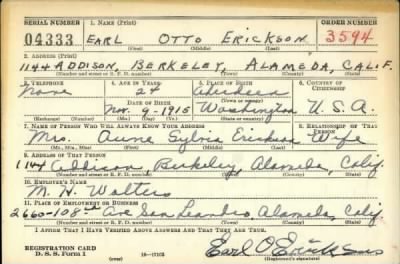 SERIAL NUMBER 1. NAME (Print) ORDER NUMBER
04333 EARL OTTO ERICKSON 3594
(First) (Middle) (Last)
2. ADDRESS (Print)
1144 ADDISON, BERKELEY, ALAMEDA, CALIF.
(Number and street or R. F. D. number) (Town) (County) (State)
3. TELEPHONE 4. AGE IN YEARS 5. PLACE OF BIRTH 6. COUNTRY OF CITIZENSHIP
None 24 Aberdeen
DATE OF BIRTH (Town or county)
Nov. 9-1915 Washington U.S.A.
(Exchange) (Number) (Mo.) (Day) (Yr.) (State or country)
7. NAME OF PERSON WHO WILL ALWAYS KNOW YOUR ADDRESS 8. RELATIONSHIP OF THAT PERSON
Mrs. Sylvia Erickson Wife
(Mr., Mrs., Miss) (First) (Middle) (Last)
9. ADDRESS OF THAT PERSON
1144 Addison Berkeley, Alameda, Calif.
(Number and street or R. F. D. number) (Town) (County) (State)
10. EMPLOYER'S NAME
M. N. Walters
11. PLACE OF EMPLOYMENT OR BUSINESS
2660-108th Ave San Leandro, Alameda, Calif
(Number and street or R. F. D. number) (Town) (County) (State)
I AFFIRM THAT I HAVE VERIFIED ABOVE ANSWERS AND THAT THEY ARE TRUE.
REGISTRATION CARD
D. S. S. Form 1 (over) Earl O Erickson
(Registrant's signature)